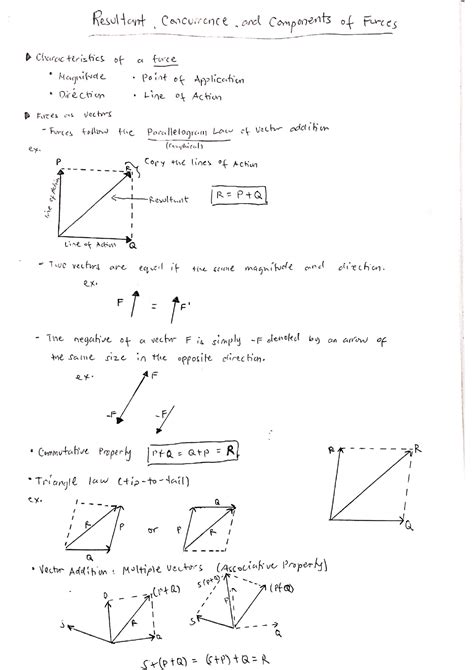 Resultant, Concurrence, and Components of Forces
Characteristics of a force
• Magnitude • Point of Application
• Direction • Line of Action
Forces as vectors
- Forces follow the Parallelogram Law of vector addition
(Graphical)
ex.
P
R
Copy the lines of Action
Line of Action
Resultant
R = P + Q
Line of Action
Q
- Two vectors are equal if the same magnitude and direction.
ex.
F = F'
- The negative of a vector F is simply -F denoted by an arrow of
the same size in the opposite direction.
ex.
F
-F
-F
• Commutative Property P+Q = Q+P = R
R
Q
• Triangle law (tip-to-tail)
ex.
R
P
Q
or
Q
P
R
• Vector Addition: Multiple Vectors (Associative Property)
(P+Q)
S
R
Q
S(P+Q)
(P+Q)
P
S
Q
S+(P+Q) = (S+P)+Q = R